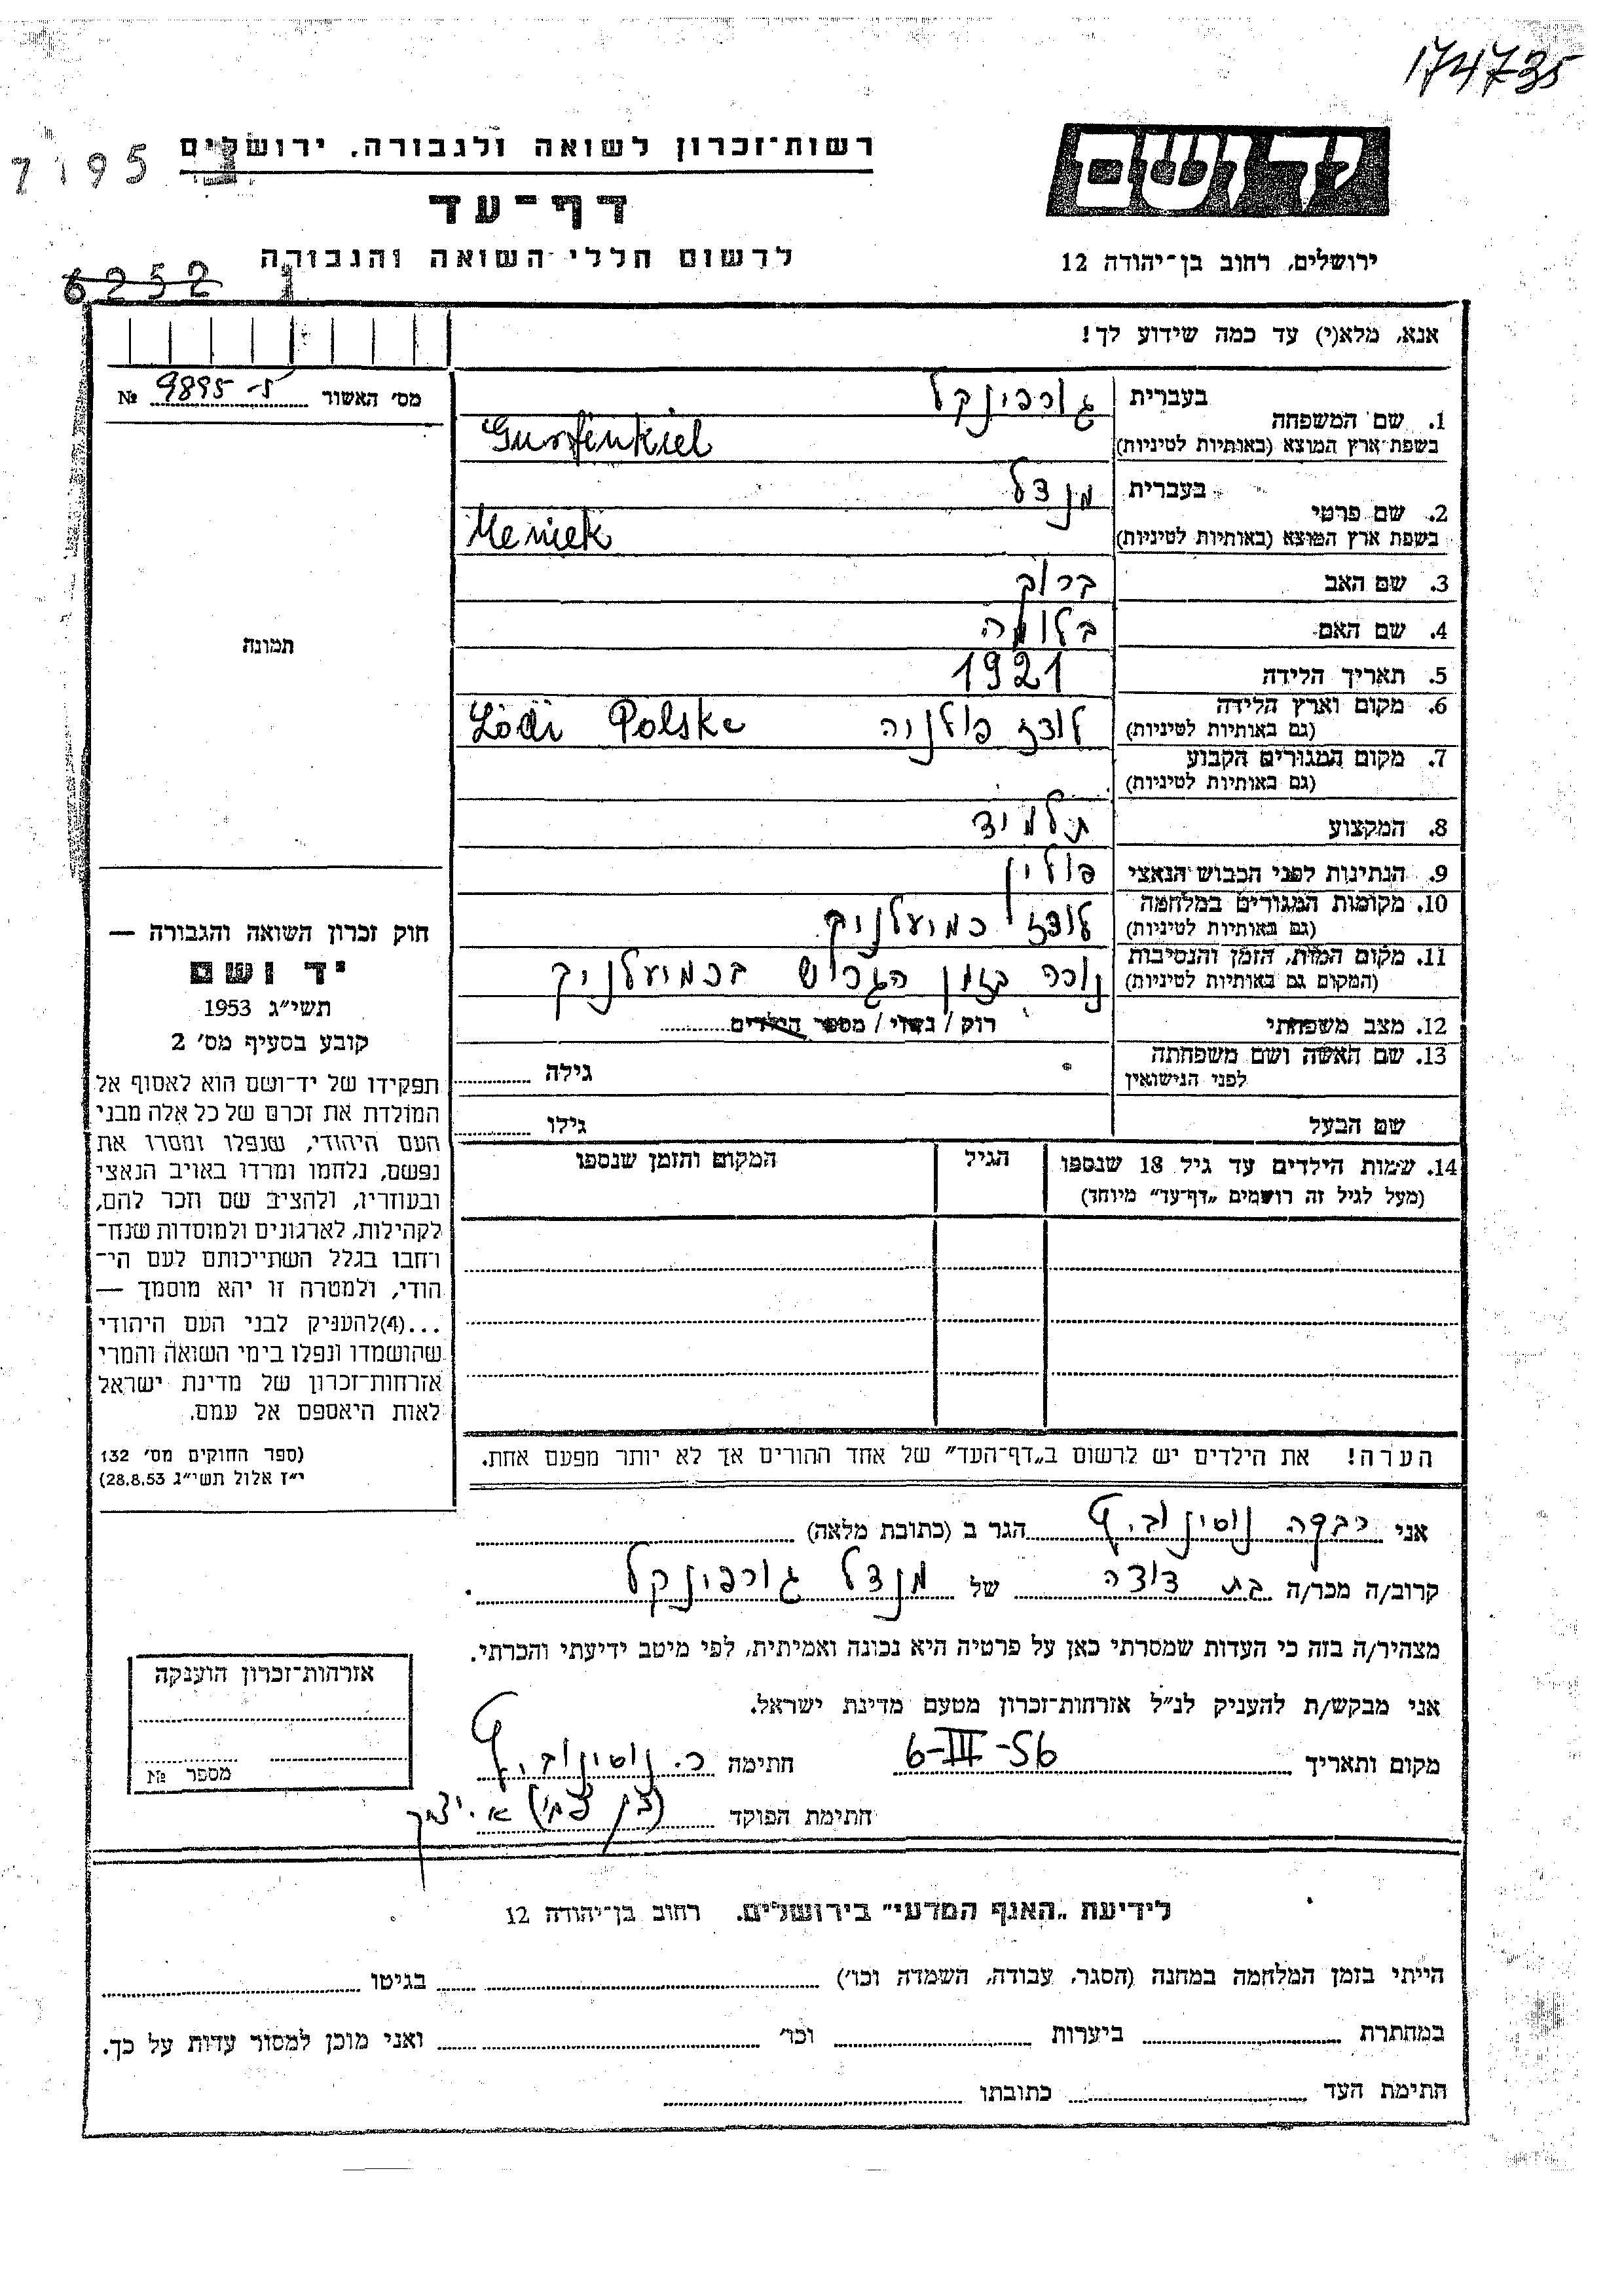 174735
7195
רשות־זכרון לשואה ולגבורה. ירושלים
דף־עד
לרשום חללי השואה והגבורה
ירושלים, רחוב בן־יהודה 12
6252
אנא, מלא(י) עד כמה שידוע לך!
מס׳ האשור 9895 №
1. שם המשפחה
בעברית גורפינקל
בשפת־ארץ המוצא (באותיות לטיניות) Gurfinkiel
2. שם פרטי
בעברית מנדל
בשפת ארץ המוצא (באותיות לטיניות) Meniek
3. שם האב ברוך
4. שם האם בלומה
5. תאריך הלידה 1921
6. מקום וארץ הלידה לודז פולניה Polska
(גם באותיות לטיניות)
7. מקום המגורים הקבוע
(גם באותיות לטיניות)
8. המקצוע תלמיד
9. הנתינות לפני הכבוש הנאצי פולין
10. מקומות המגורים במלחמה לודז כמיעלניק
(גם באותיות לטיניות)
11. מקום המות, הזמן והנסיבות בזמן הגרוש בכמיעלניק
(המקום גם באותיות לטיניות)
12. מצב משפחתי רוק / נשוי / מספר הילדים
13. שם האשה ושם משפחתה
לפני הנישואין
גילה
שם הבעל גילו
14. שמות הילדים עד גיל 18 שנספו
(מעל לגיל זה רושמים „דף־עד״ מיוחד)
הגיל
המקום והזמן שנספו
הערה! את הילדים יש לרשום ב„דף־העד״ של אחד ההורים אך לא יותר מפעם אחת.
תמונה
חוק זכרון השואה והגבורה —
יד ושם
תשי״ג 1953
קובע בסעיף מס׳ 2
תפקידו של יד־ושם הוא לאסוף אל
המולדת את זכרם של כל אלה מבני
העם היהודי, שנפלו ומסרו את
נפשם, נלחמו ומרדו באויב הנאצי
ובעוזריו, ולהציב שם וזכר להם,
לקהילות, לארגונים ולמוסדות שנח־
רחבו בגלל השתייכותם לעם הי־
הודי, ולמטרה זו יהא מוסמך —
...(4)להעניק לבני העם היהודי
שהושמדו ונפלו בימי השואה והמרי
אזרחות־זכרון של מדינת ישראל
לאות היאספם אל עמם.
(ספר החוקים מס׳ 132
י״ז אלול תשי״ג 28.8.53)
אני רבקה הגר ב (כתובת מלאה)
קרוב/ה מכר/ה בת דודה של מנדל גורפינקל
מצהיר/ה בזה כי העדות שמסרתי כאן על פרטיה היא נכונה ואמיתית, לפי מיטב ידיעתי והכרתי.
אני מבקש/ת להעניק לנ״ל אזרחות־זכרון מטעם מדינת ישראל.
מקום ותאריך 6-III-56 חתימה
חתימת הפוקד
אזרחות־זכרון הוענקה
מספר №
לידיעת „האגף המדעי״ בירושלים. רחוב בן־יהודה 12
הייתי בזמן המלחמה במחנה (הסגר, עבודה, השמדה וכו׳) בגיטו
במחתרת ביערות וכו׳ ואני מוכן למסור עדות על כך.
חתימת העד כתובתו